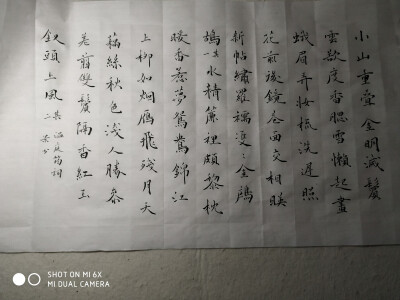 小山重疊金明滅鬢
雲欲度香腮雪懶起畫
蛾眉弄妝梳洗遲照
花前後鏡花面交相映
新帖繡羅襦雙〻金鷓
鴣 其一 水精簾裡頗黎枕
暖香惹夢鴛鴦錦江
上柳如烟雁飛殘月天
藕絲秋色淺人勝參
差剪雙鬢隔香紅玉
釵頭上風 其二 温庭筠詞
SHOT ON MI 6X
MI DUAL CAMERA